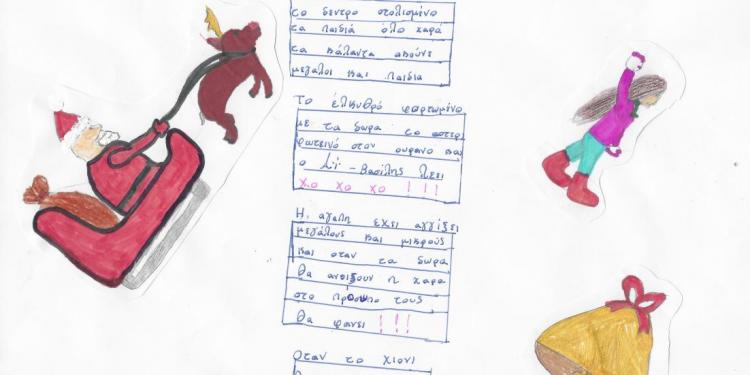 το δεντρο στολισμένο
τα παιδιά όλο χαρά
τα κάλαντα ακούνε
μεγάλοι και παιδιά
Το έλκυθρό φορτωμένο
με τα δωρα το αστερι
φωτεινό στον ουρανο και
ο Αϊ - Βασίλης λεει
χο χο χο ! ! !
Η αγαπη εχει αγγίξει
μεγάλους και μικρούς
και οταν τα δωρα
θα ανοιξουν η χαρα
στο πρόσωπο τους
θα φανει ! ! !
Οταν το χιονι